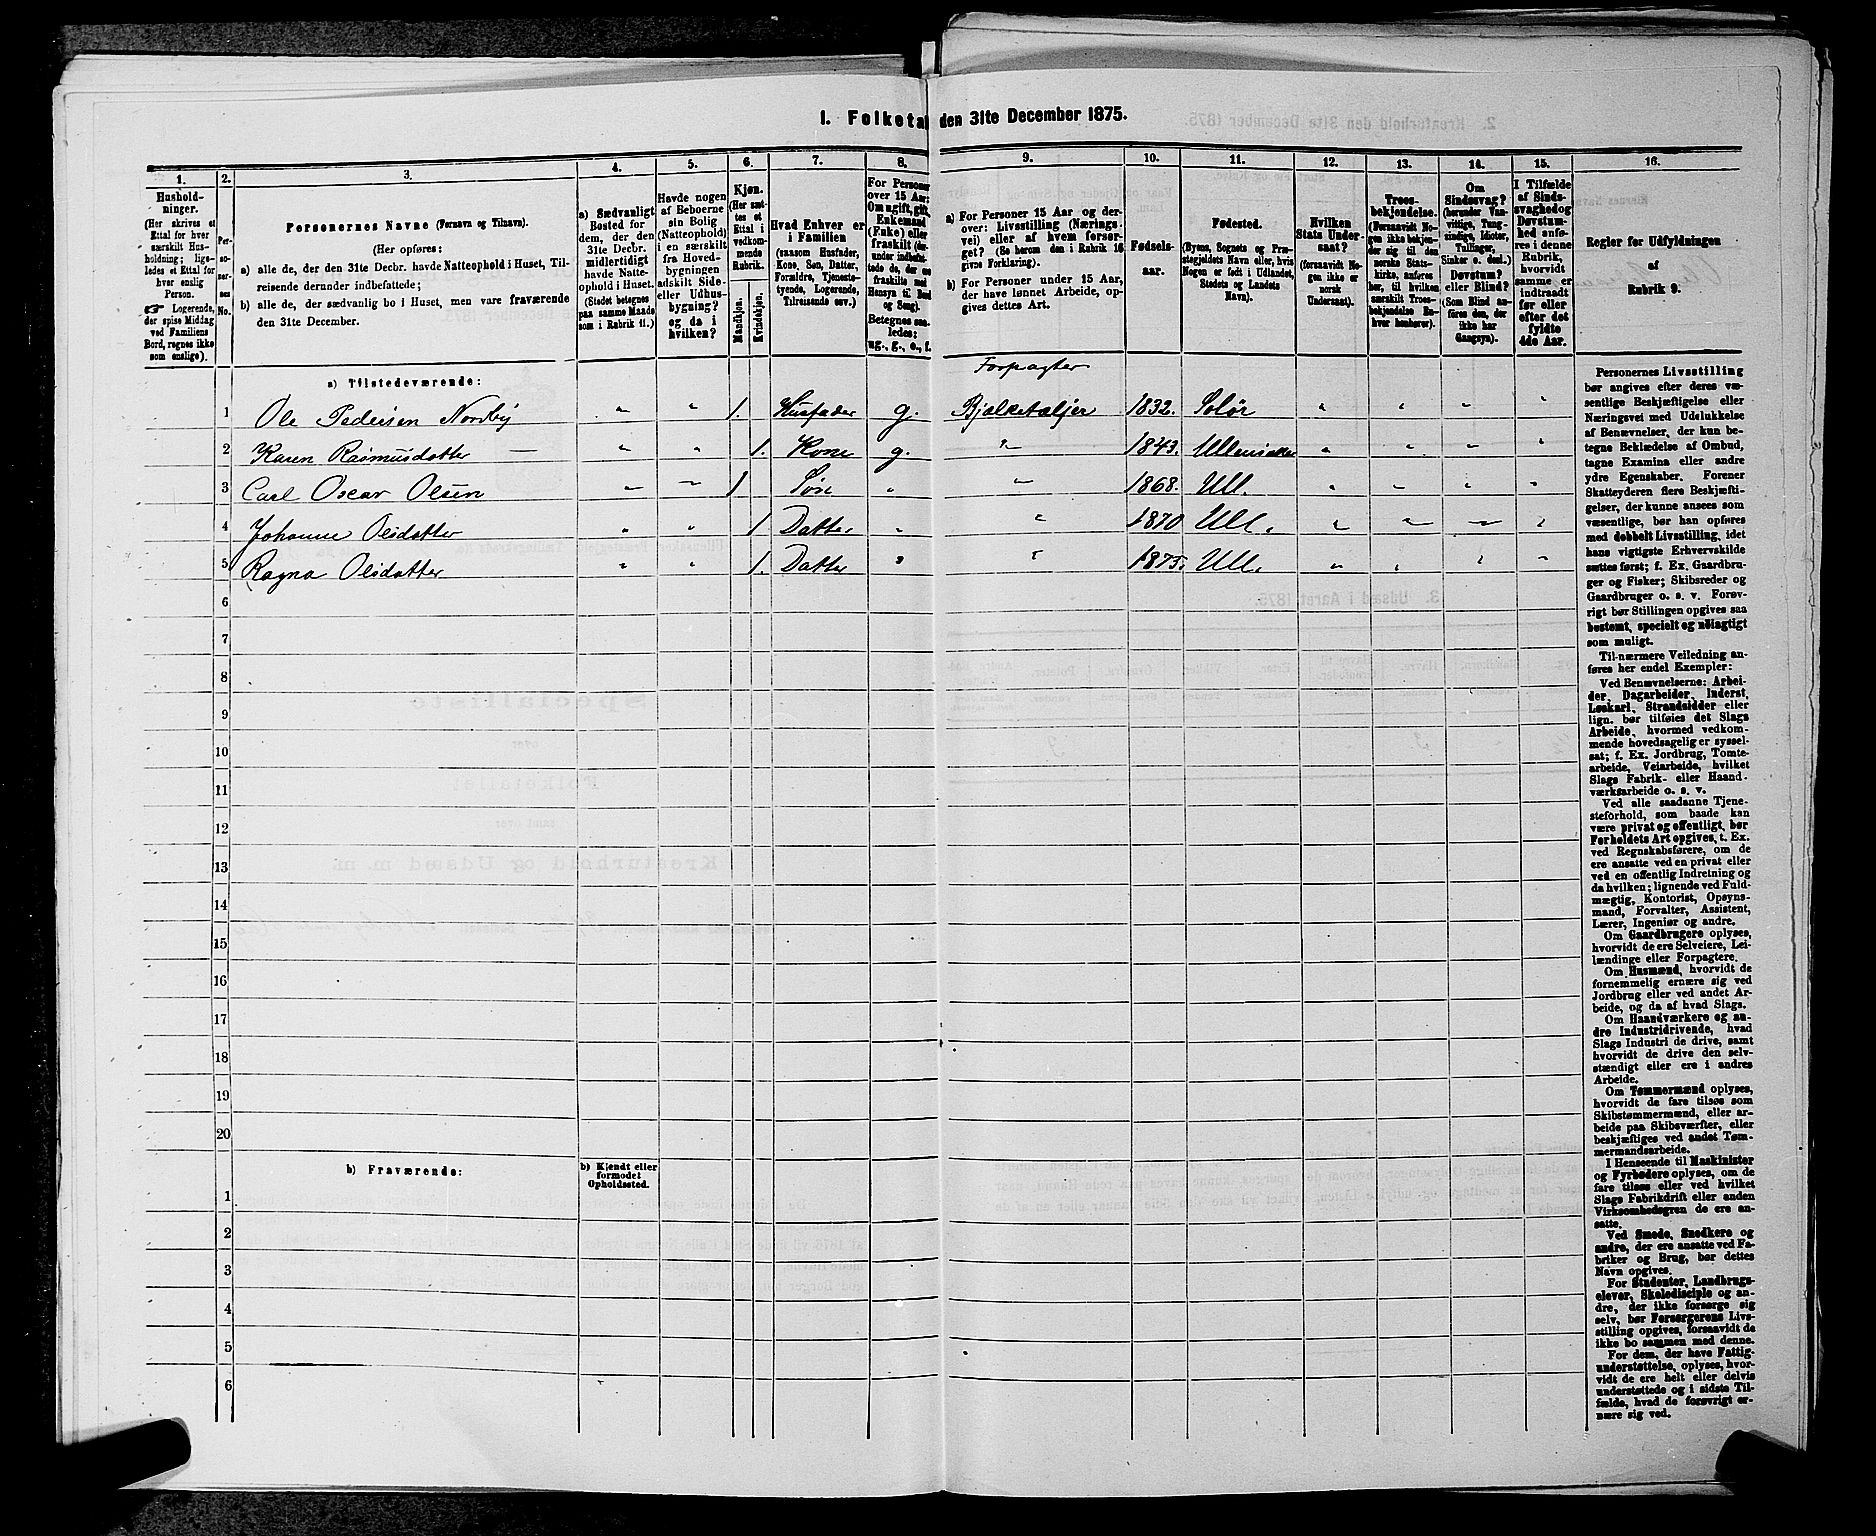 I. Folketal den 31te December 1875.
1.
Hushold-
ninger.
(Her skrives et
Ettal for hver
særskilt Hus-
holdning; lige-
ledes et Ettal for
hver enslig
Person.
☞ Logerende,
der spise Middag
ved Familiens
Bord, regnes ikke
som enslige).
2.
Per-
so-
ner-
nes
No.
3.
Personernes Navne (Fornavn og Tilnavn).
(Her opføres:
a) alle de, der den 31te Decbr. havde Natteophold i Huset, Til-
reisende derunder indbefattede;
b) alle de, der sædvanlig bo i Huset, men vare fraværende
den 31te December.
4.
a) Sædvanligt
Bosted for
dem, der den
31te Decbr.
midlertidigt
havde Natte-
ophold i Huset.
(Stedet betegnes
paa samme Maade
som i Rubrik 11.)
5.
Havde nogen
af Beboerne
sin Bolig
(Natteophold)
i en særskilt
fra Hoved-
bygningen
adskilt Side-
eller Udhus-
bygning?
og da i
hvilken?
6.
Kjøn.
(Her sæt-
tes et
Ettal i
vedkom-
mende
Rubrik.
Mandkjøn.
Kvindekjøn.
7.
Hvad Enhver er
i Familien
(saasom Husfader,
Kone, Søn, Datter,
Forældre, Tjeneste-
tyende, Logerende,
Tilreisende osv.)
8.
For Personer
over 15 Aar:
Om ugift, gift,
Enkemand
(Enke) eller
fraskilt (der-
under indbefat-
tede de, der ere
fraskilte med
Hensyn til Bord
og Seng).
Betegnes saa-
ledes:
ug., g., e., f.
9.
a) For Personer 15 Aar og der-
over: Livsstilling (Nærings-
vei) eller af hvem forsør-
get? (Se herom den i Rubrik 16
givne Forklaring).
b) For Personer under 15 Aar,
der have lønnet Arbeide, op-
gives dettes Art.
10.
Fødsels-
aar.
11.
Fødested.
(Byens, Sognets og Præ-
stegjeldets Navn eller, hvis
Nogen er født i Udlandet,
Stedets og Landets
Navn).
12.
Hvilken
Stats Under-
saat?
(forsaavidt No-
gen ikke er
norsk
Undersaat).
13.
Troes-
bekjendelse.
(Forsaavidt No-
gen ikke bekjen-
der sig til den
norske Stats-
kirke, anføres
her, til hvilken
særskilt Troes-
bekjendelse En-
hver henhører).
14.
Om
Sindssvag?
(herunder Van-
vittige, Tung-
sindige, Idioter,
Tullinger,
Sinker o. desl.)
Døvstum?
eller Blind?
(Som Blind an-
føres den, der
ikke har
Gangsyn).
15.
I Tilfælde
af Sinds-
svaghed og
Døvstum-
hed anfø-
res i denne
Rubrik,
hvorvidt
samme er
indtraadt
før eller
efter det
fyldte
4de Aar.
16.
Regler for Udfyldningen
af
Rubrik 9.
a) Tilstedeværende:
Forpagter
1 Ole Pedersen Nordby " " 1. Husfader g. Bjælketæljer 1832. Solør " " " "
2 Karen Rasmusdatter — " " 1. Kone g. " 1843. Ullensaker " " " "
3 Carl Oscar Olsen " " 1 Søn " " 1868. Ull. " " " "
4 Johanne Olsdatter " " 1 Datter " " 1870 Ull. " " " "
5 Ragna Olsdatter " " 1. Datter " " 1875. Ull. " " " "
6
7
8
9
10
11
12
13
14
15
16
17
18
19
20
b) Fraværende:
b) Kjendt eller
formodet
Opholdssted.
1
2
3
4
5
6
Personernes Livsstilling
bør angives efter deres væ-
sentlige Beskjæftigelse eller
Næringsvei med Udelukkelse
af Benævnelser, der kun be-
tegne Beklædelse af Ombud,
tagne Examina eller andre
ydre Egenskaber. Forener
Skatteyderen flere Beskjæfti-
gelser, der kunne ansees som
væsentlige, bør han opføres
med dobbelt Livsstilling, idet
hans vigtigste Erhvervskilde
sættes først; f. Ex. Gaardbru-
ger og Fisker; Skibsreder og
Gaardbruger o. s. v. Forøv-
rigt bør Stillingen opgives saa
bestemt, specielt og nøiagtigt
som muligt.
Til nærmere Veiledning an-
føres her endel Exempler:
Ved Benævnelserne: Arbei-
der, Dagarbeider, Inderst,
Løskarl, Strandsidder eller
lign. bør tilføies det Slags
Arbeide, hvormed vedkom-
mende hovedsagelig er syssel-
sat; f. Ex. Jordbrug, Tomte-
arbeide, Veiarbeide, hvilket
Slags Fabrik- eller Haand-
værksarbeide o. s. v.
Ved alle saadanne Tjene-
steforhold, som baade kan
være privat og offentligt, bør
Forholdets Art opgives, t. Ex.
ved Regnskabsførere, om de
ere ansatte ved en privat eller
ved en offentlig Indretning og
da hvilken; lignende ved Fuld-
mægtig, Kontorist, Opsyns-
mand, Forvalter, Assistent,
Lærer, Ingeniør og andre.
Om Gaardbrugere oplyses,
hvorvidt de ere Selveiere, Lei-
lændinge eller Forpagtere.
Om Husmænd, hvorvidt de
fornemmelig ernære sig ved
Jordbrug eller ved andet Ar-
beide, og da af hvad Slags.
Om Haandværkere og an-
dre Industridrivende, hvad
Slags Industri de drive, samt
hvorvidt de drive den selv-
stændigt eller ere i andres
Arbeide.
Om Tømmermænd oplyses,
hvorvidt de fare tilsøs som
Skibstømmermænd, eller ar-
beide paa Skibsværfter, eller
beskjæftiges ved andet Tøm-
mermandsarbeide.
I Henseende til Maskinister
og Fyrbødere oplyses, om de
fare tilsøs eller ved hvilket
Slags Fabrikdrift eller anden
Virksomhedsgren de ere an-
satte.
Ved Smede, Snedkere og
andre, der ere ansatte ved Fa-
briker og Brug, bør dettes
Navn opgives.
For Studenter, Landbrugs-
elever, Skoledisciple og an-
dre, der ikke forsørge sig
selv, bør Forsørgerens Livs-
stilling opgives, forsaavidt de
ikke bo sammen med denne.
For dem, der have Fattig-
understøttelse, oplyses, hvor-
vidt de ere helt eller delvis
understøttede og i sidste Til-
fælde, hvad de forøvrigt er-
nære sig ved.